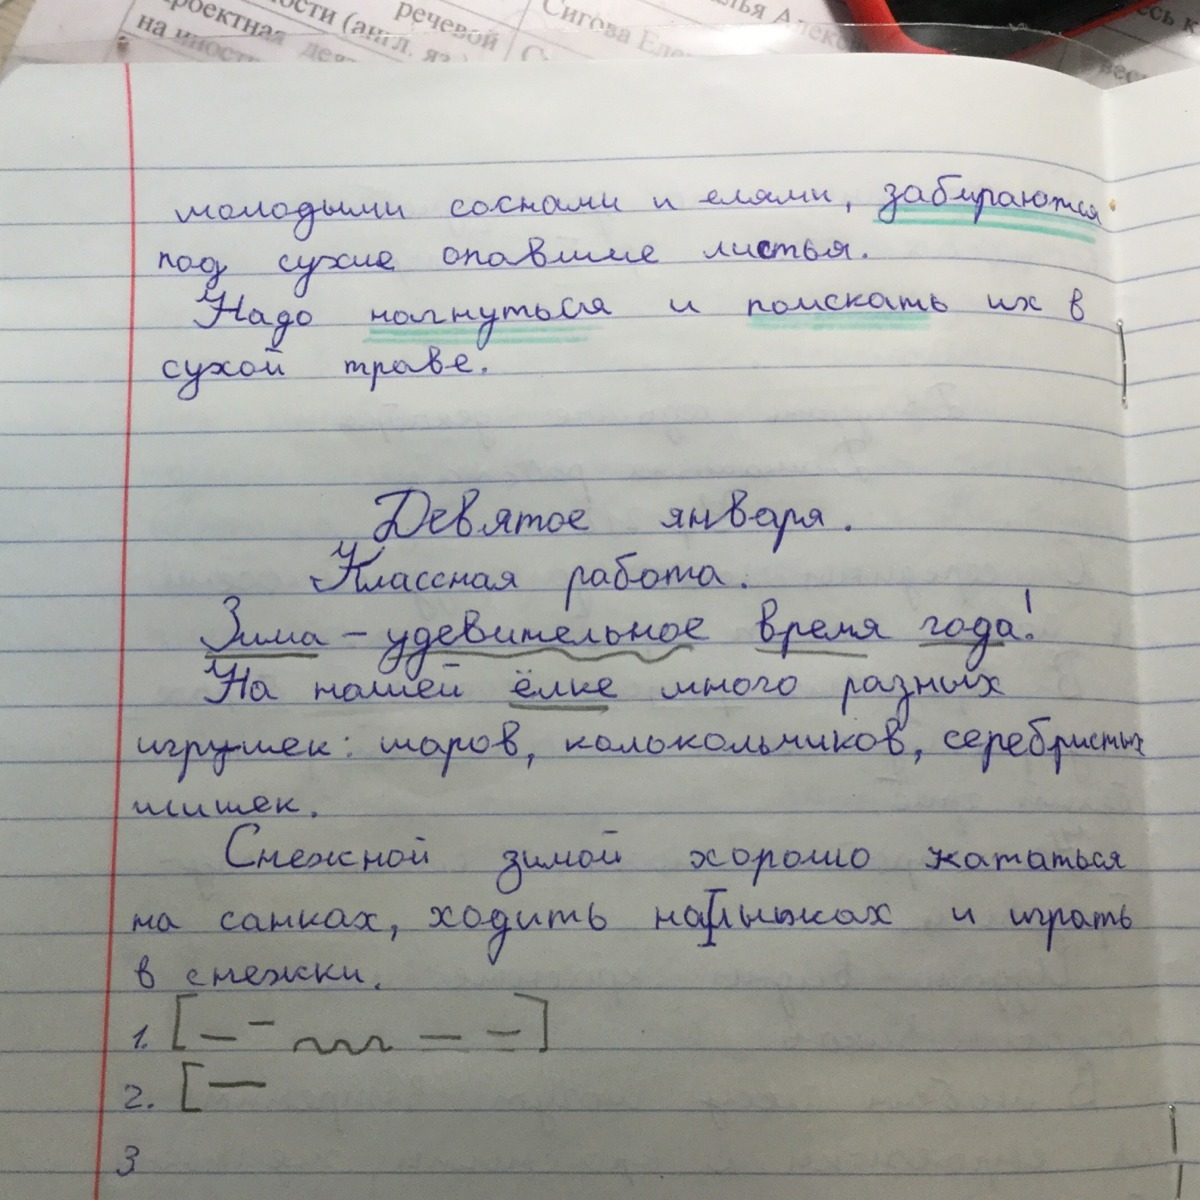 речевой
на иност
ности (англ. яз.)
Сигова Еле
молодыми соснами и елями, забираются
под сухие опавшие листья.
Надо нагнуться и поискать их в
сухой траве.
Девятое января.
Классная работа.
Зима – удевительное время года!
На нашей ёлке много разных
игрушек: шаров, колокольчиков, серебристых
шишек.
Снежной зимой хорошо кататься
на санках, ходить на лыжах и играть
в снежки.
1. [— – — —]
2. [—
3